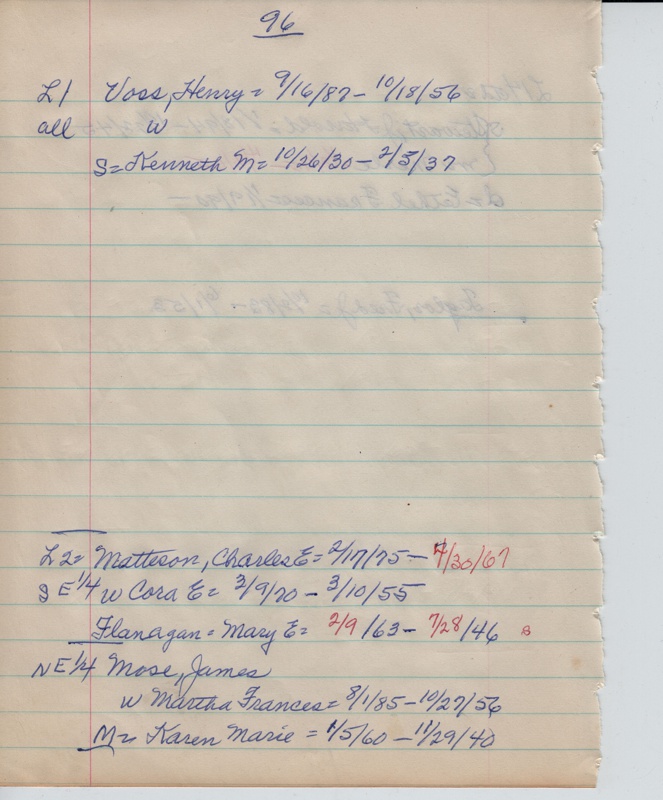 96
L1 Voss, Henry = 9/16/87 - 10/18/56
all W
S = Kenneth M = 10/26/30 - 2/5/37
L2 = Matteson, Charles E = 2/17/75 - 4/30/67
SE 1/4 W Cora E = 3/9/70 - 3/10/55
Flanagan = Mary E = 2/9/63 - 7/28/46 B
NE 1/4 Mose, James
W Martha Frances = 8/1/85 - 10/27/56
M = Karen Marie = 1/5/60 - 11/29/40